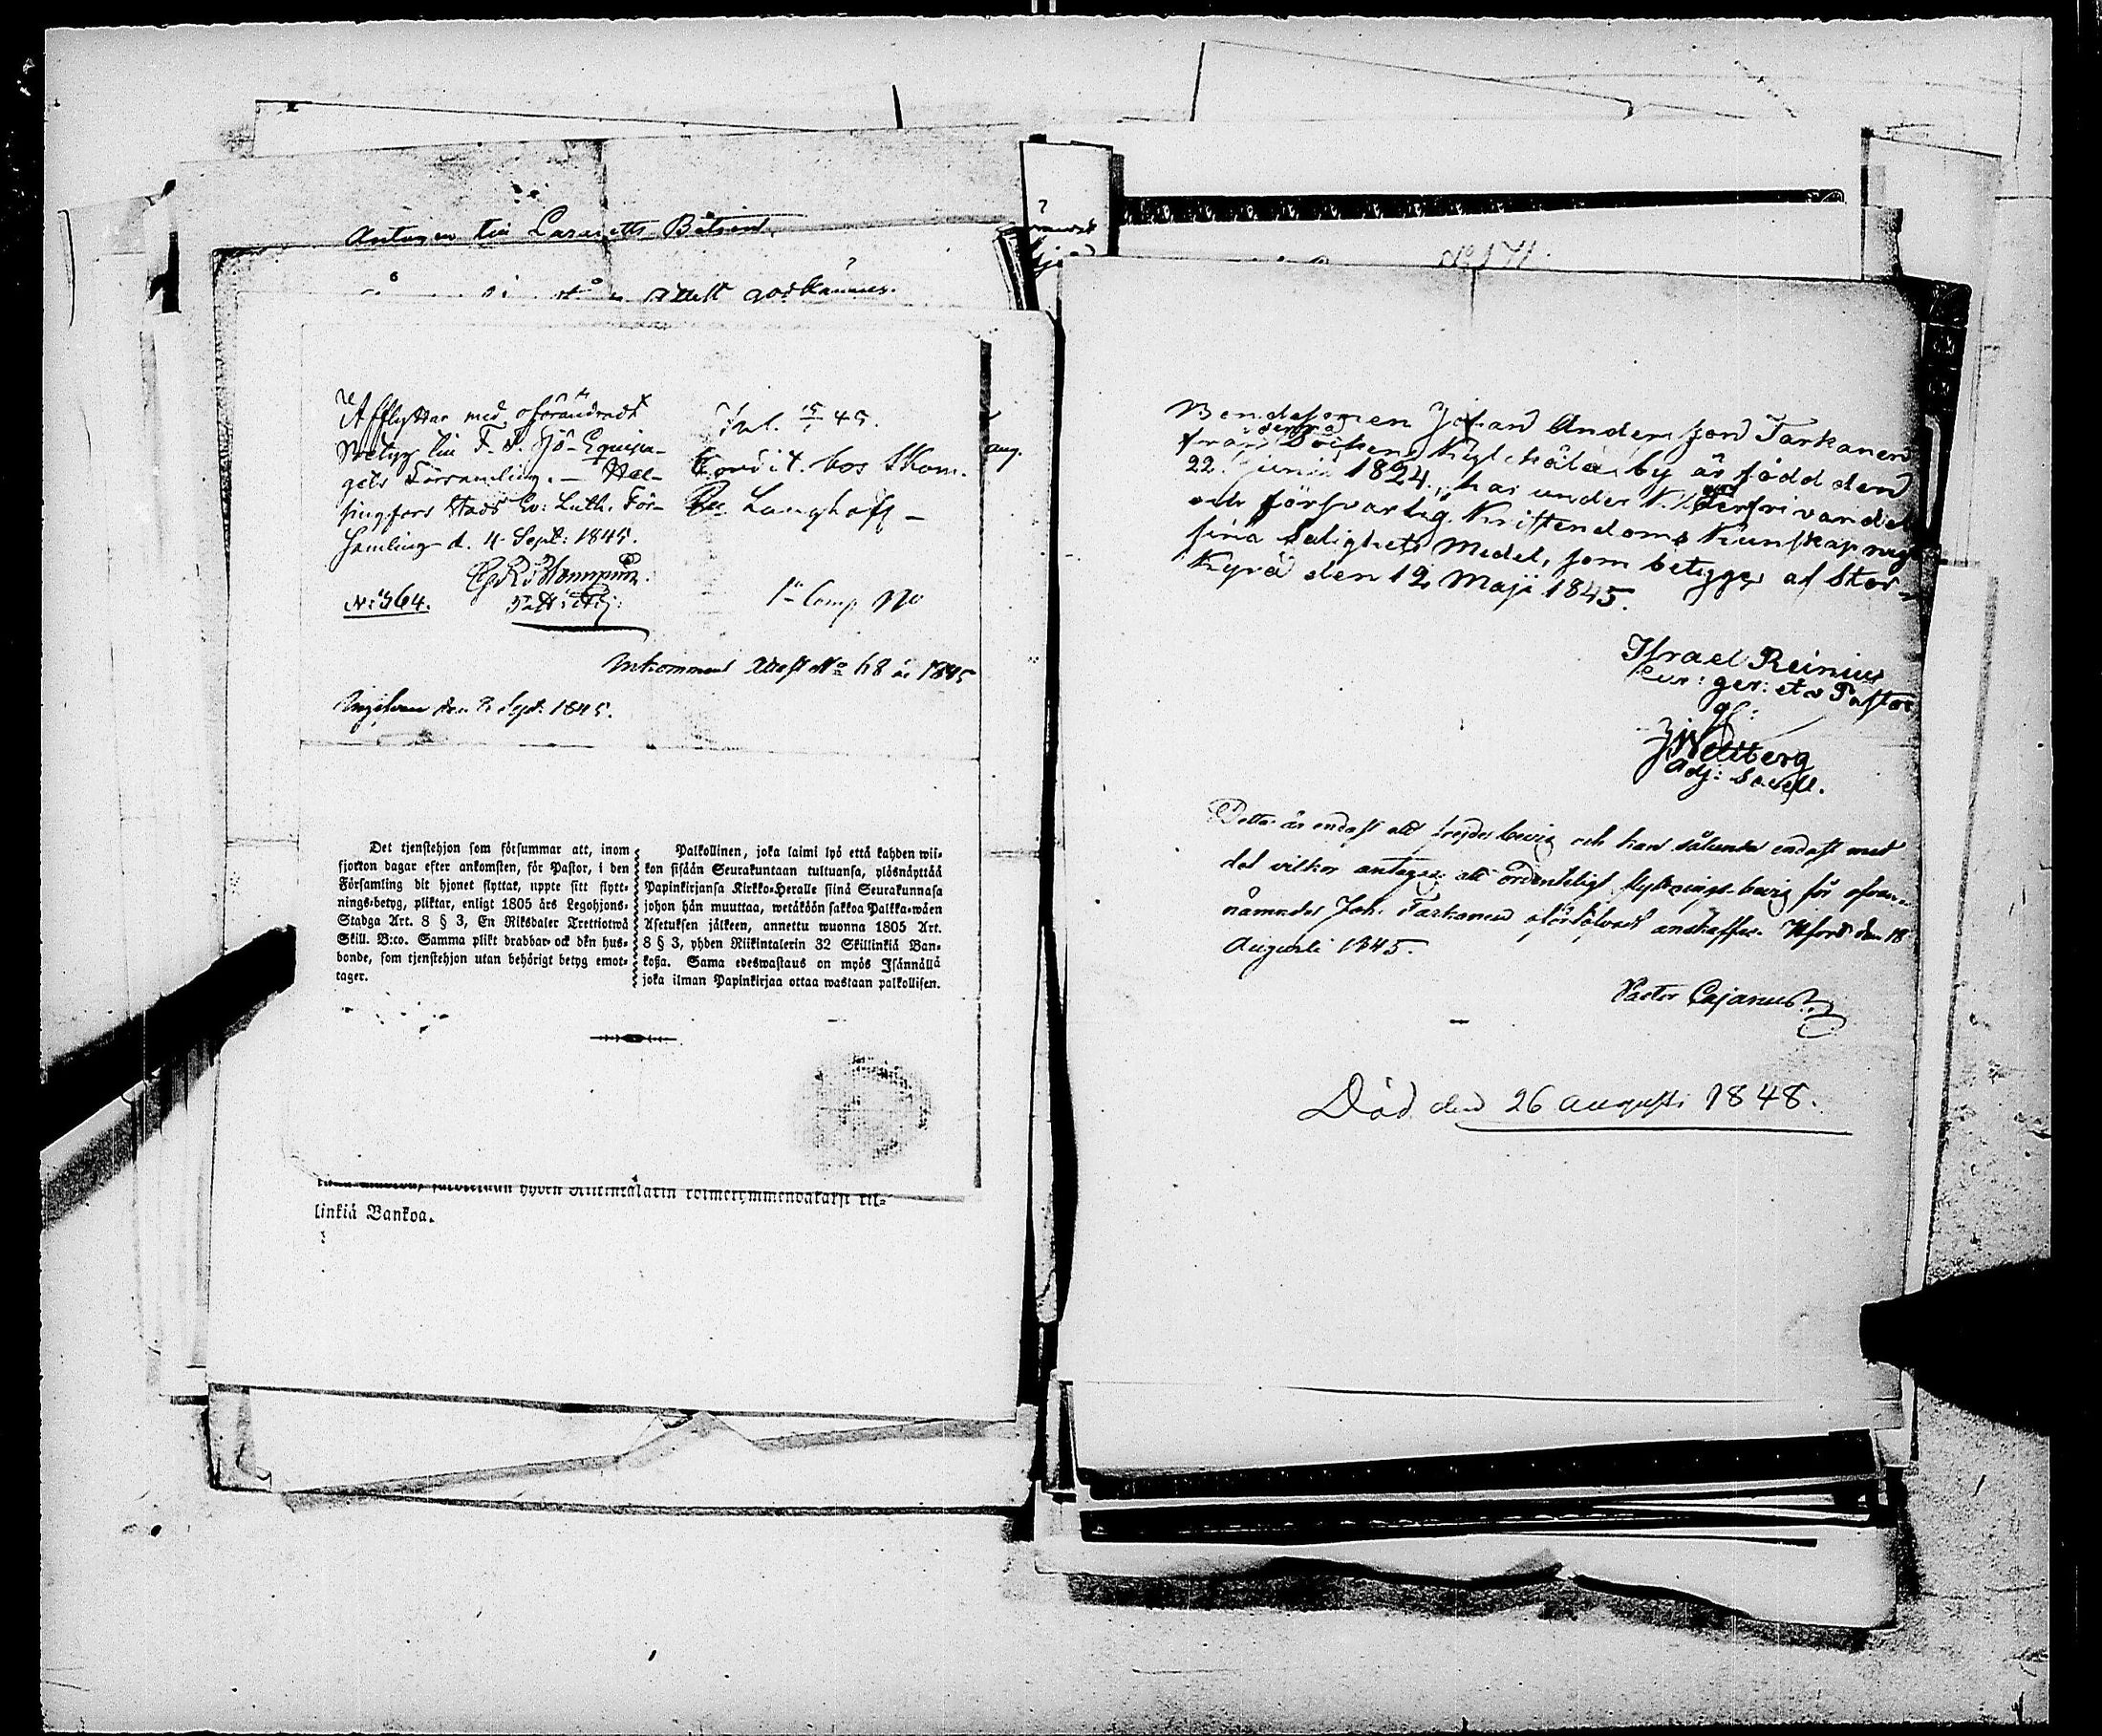 Antagen till Lazaretts Betjent
attest godkännes.
Afflyttar med oförändradt
Betyg till F. S. Sjö-Equipa-
gets Församling. – Hel-
singfors Stads Ev: Luth. För-
samling d. 4 Sept: 1845.
No 364.
Inl. 45.
Condit. hos Skom.
Langhoff –
1a Comp 170
Inkommend attest No 68 år 1845
den 8 Sept: 1845.
aug.
Det tjenstehjon som försummar att, inom
fjorton dagar efter ankomsten, för Pastor, i den
Församling dit hjonet flyttat, uppte sitt flytt-
nings-betyg, pliktar, enligt 1805 års Legohjons-
Stadga Art. 8 § 3, En Riksdaler Trettiotwå
Skill. B:co. Samma plikt drabbar ock den hus-
bonde, som tjenstehjon utan behörigt betyg emot-
tager.
Palkollinen, joka laimi lyö että kahden wii-
kon sisään Seurakuntaan tultuansa, ylösnäyttää
Papinkirjansa Kirkko-Heralle siinä Seurakunnasa
johon hän muuttaa, wetäköön sakkoa Palkka-wäen
Asetuksen jälkeen, annettu wuonna 1805 Art.
8 § 3, yhden Riikintalerin 32 Skillinkiä Ban-
koßa. Sama edeswastaus on myös Isännällä
joka ilman Papinkirjaa ottaa wastaan palkollisen.
yhden Riikintalarin
linkiä Bankoa.
No 171.
Bondesonen Johan Andersson Tarkanen
från denna Sockens Kyläkälä by är född den
22 Junii 1824, har under N. W. Derfri vandel
och försvarlig Kristendoms Kunskap
sina Salighets Medel, som betygges af Stor-
Kyrå den 12 Maji 1845.
Israel Reinius
Cur: ger: et v Pastor
gf:
J Wettberg
Adj: Sacell.
Detta är endast ett frejdebevis och kan sålunda endast med
det vilkor antagas att ordentligt flyttnings-bevis för ofvan-
nämndes Joh. Tarkanen oförtöfvadt anskaffas. Hfors den 18
Augusti 1845.
Victor Cajanus
Död den 26 Augusti 1848.